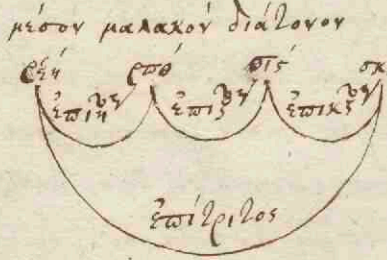 μέσον μαλακόν διάτονον
ρξή ρπθ́ σιϛ́ σκ
ἐπιη ἐπιζ ἐπικζ
ἐπίτριτος